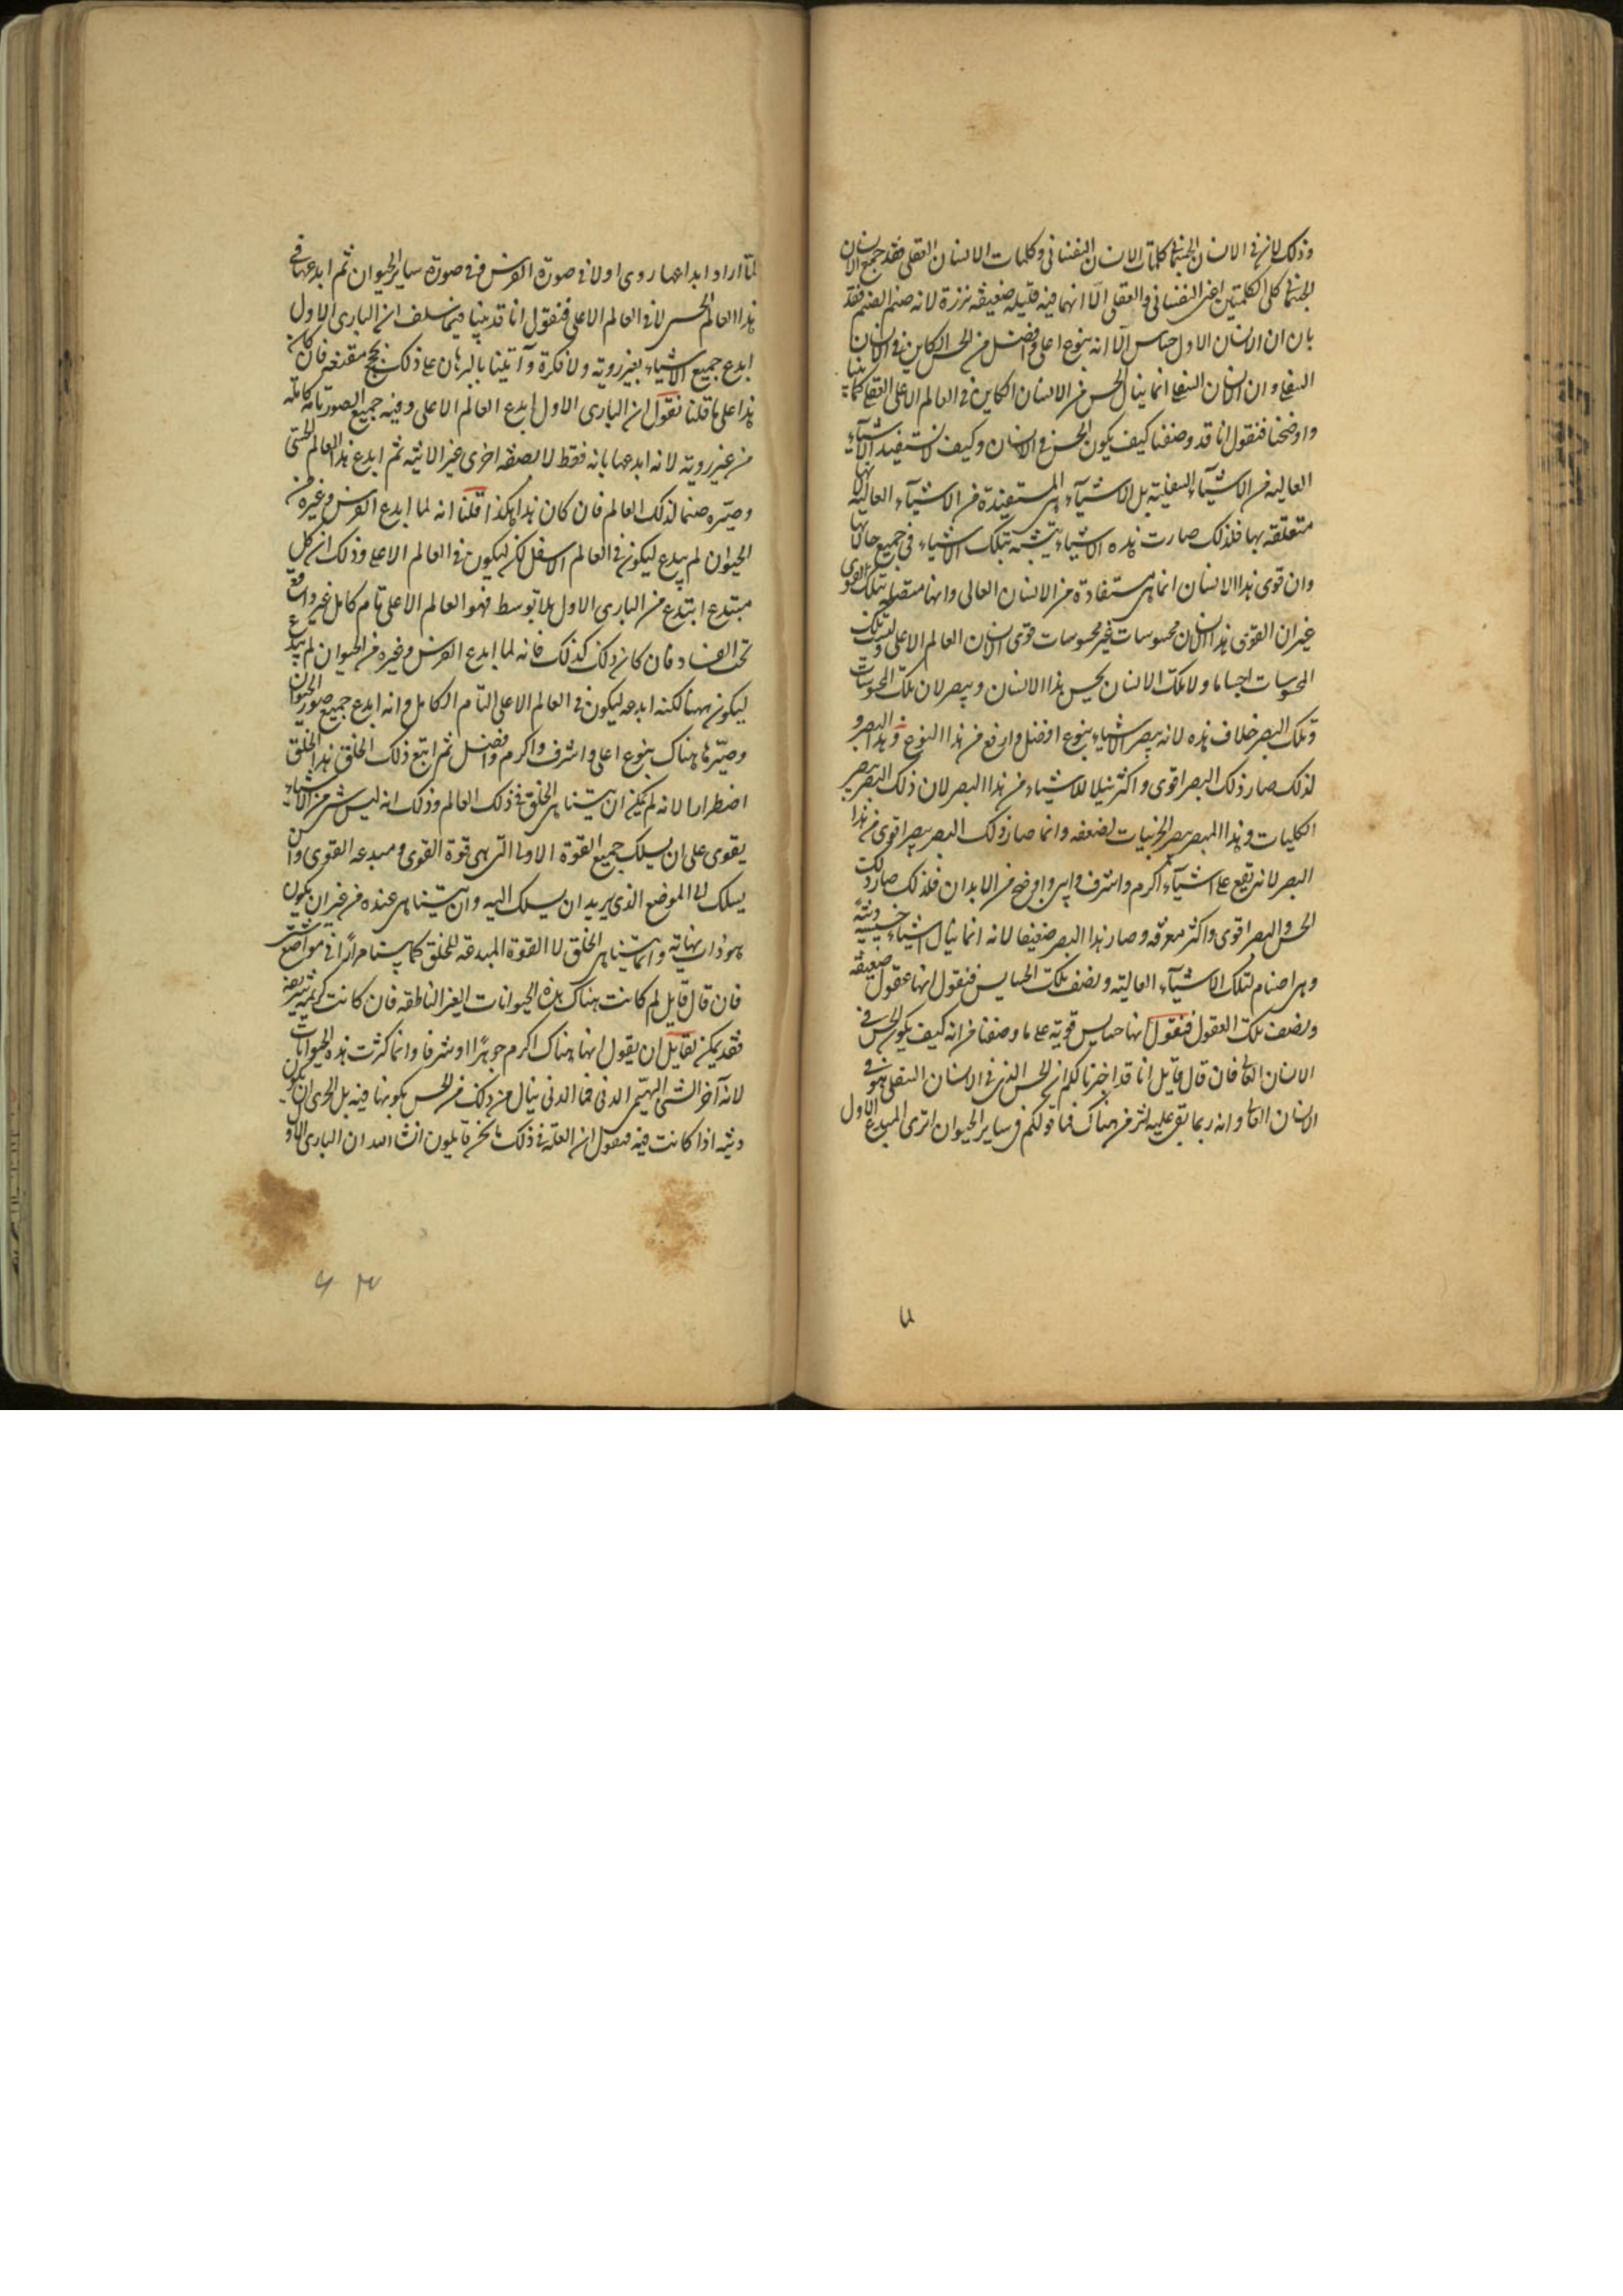 وذلك ان في الانسان الجسماني كلمات الانسان النفساني وكلمات الانسان العقلي فقد جمع الانسان
الجسماني كلي الكلمتين اعني النفساني والعقلي الا انهما فيه قليله ضعيفه نزرة لانه صنم الصنم فقد
بان ان الانسان الاول حساس الا انه بنوع اعلى وافضل من الحس الكاين في الانسان
السفلي وان الانسان السفلي انما ينال الحس من الانسان الكاين في العالم الاعلى العقلي كما بينا
واوضحنا فنقول انا قد وصفنا كيف يكون الحس في الانسان وكيف لا تستفيد الاشياء
العاليه من الاشياء السفلية بل الاشياء هي المستفيدة من الاشياء العاليه لانها
متعلقه بها فلذلك صارت هذه الاشياء يتشبه بتلك الاشياء في جميع حالاتها
وان قوى هذا الانسان انما هي مستفادة من الانسان العالي وانها متصله بتلك القوى
غير ان القوى هذا الانسان محسوسات غير محسوسات قوى الانسان العالم الاعلى وليست تلك
المحسوسات اجساما ولا تلك الانسان يحس هذا الانسان ويبصر لان تلك المحسوسات
وتلك البصر خلاف هذه لانه يبصر الاشياء بنوع افضل وارفع من هذا النوع وهذا البصر و
لذلك صار ذلك البصر اقوى واكثر نيلا للاشياء من هذا البصر لان ذلك البصر يبصر
الكليات وهذا المبصر يبصر الجزئيات لضعفه وانما صار ذلك البصر يبصر اقوى من هذا
البصر لانه يقع على اشياء اكرم واشرف وابين واوضح من الابدان فلذلك صار ذلك
الحس والبصر اقوى واكثر معرفه وصار هذا البصر ضعيفا لانه انما ينال اشياء خسيسه دنية
وهي اصنام لتلك الاشياء العاليه ونصف تلك الحسايس فنقول انها عقول ضعيفه
ونصف تلك العقول فنقول انها حسايس قوية على ما وصفنا من انه كيف يكون الحس في
الانسان العالي فان قال قايل انا قد اخبرناكم ان الحس الذي في الانسان السفلي هو في
الانسان العالي وانه ربما بقي عليه اثر من هناك فما قولكم في ساير الحيوان اترى المبدع الاول
لما اراد ابداعها روى اولا في صورة الفرس وفي صورة ساير الحيوان ثم ابدعها في
هذا العالم الحسي لا في العالم الاعلى فنقول انا قد بينا فيما سلف ان الباري الاول
ابدع جميع الاشياء بغير روية ولا فكرة وآتينا بالبرهان على ذلك بحجج مقنعه فان كان
هذا على ما قلنا نقول ان الباري الاول ابدع العالم الاعلى وفيه جميع الصور تامة كامله
من غير روية لانه ابدعها بانه فقط لا بصفه اخرى غير الانيه ثم ابدع هذا العالم الحسي
وصيره صنما لذلك العالم فان كان هذا هكذا قلنا انه لما ابدع الفرس وغيره من
الحيوان لم يبدع ليكون في العالم الاسفل لكن ليكون في العالم الاعلى وذلك ان كل
مبتدع ابتدع من الباري الاول بلا توسط فهو العالم الاعلى تام كامل غير واقع
تحت الفساد فان كان ذلك كذلك فانه لما ابدع الفرس وغيره من الحيوان لم يبدع
ليكون ههنا لكنه ابدعه ليكون في العالم الاعلى التام الكامل وانه ابدع جميع صور الحيوان
وصيرها هناك بنوع اعلى واشرف واكرم وافضل ثم اتبع ذلك الخلق هذا الخلق
اضطرارا لانه لم يكن ان يتناهى الخلق في ذلك العالم وذلك انه ليس شي من الاشياء
يقوى على ان يسلك جميع القوة الاولى التي هي قوة القوى ومبدعه القوى وان
يسلك الى الموضع الذي يريد ان يسلك اليه وان يتناهى عنده من غير ان يكون
هو ذات نهاية وانما يتناهى الخلق لا القوة المبدعه للخلق كما بينا مرارا في مواضع شتى
فان قال قايل لم كانت هناك هذه الحيوانات الغير الناطقه فان كانت كريمة شريفه
فقد يمكن لقايل ان يقول انها هناك اكرم جوهرا وشرفا وانما كثرت هذه الحيوانات
لانه آخر الشي البهيمي الدني فما الذي ينال من ذلك من الحس بكونها فيه بل الحري ان يكون
دنيه اذا كانت فيه فنقول ان العلة في ذلك ما نحن قايلون انشا الله ان الباري الاول